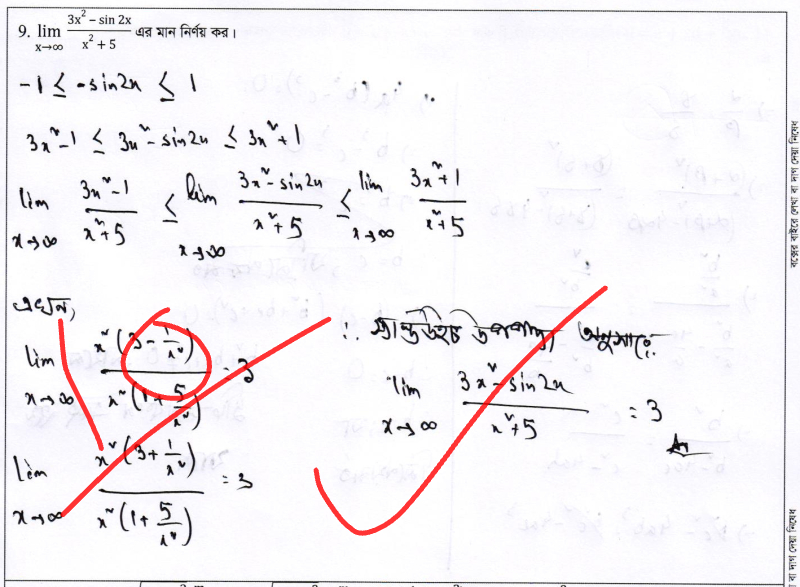 9. lim x→∞ (3x² − sin 2x)/(x² + 5) এর মান নির্ণয় কর।
−1 ≤ −sin2x ≤ 1
3x²−1 ≤ 3x²−sin2x ≤ 3x²+1
lim x→∞ (3x²−1)/(x²+5) ≤ lim x→∞ (3x²−sin2x)/(x²+5) ≤ lim x→∞ (3x²+1)/(x²+5)
এখন,
lim x→∞ x²(3 − 1/x²)/x²(1 + 5/x²) = 3
lim x→∞ x²(3 + 1/x²)/x²(1 + 5/x²) = 3
∴ স্যান্ডউইচ উপপাদ্য অনুসারে:
lim x→∞ (3x² − sin2x)/(x²+5) = 3
Ans
বক্সের বাইরে লেখা বা দাগ দেয়া নিষেধ
বা দাগ দেয়া নিষেধ